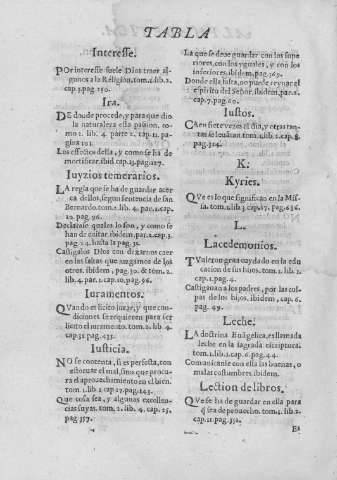 TABLA
Interesse.
POr interesse suele Dios traer algunos a la Religion, tom.1.lib.2.
cap.3.pag.150.
Ira.
DE donde procede, y para que dio
la naturaleza esta pasion. tomo
1. lib. 4. parte 2. cap. 1. pagina
191.
Los effectos della, y como se ha de
mortificar. ibid.cap.13.pag.227.
Iuyzios temerarios.
LA regla que se ha de guardar acerca
dellos, segun sentencia de san
Bernardo. tom.1.lib. 4. par.1.cap.
10. pag. 96.
Declarase quales lo son, y como se
han de euitar. ibidem. par.2.cap.3.
pag.24. hasta la pag. 31.
Castigalos Dios con dexarnos caer
en las faltas que juzgamos de los
otros. ibidem, pag. 30. & tom. 2.
lib. 4. par. 1. cap. 10. pag. 96.
Iuramentos.
QVando es licito jurar, y que condiciones
se requieren para ser
licito el juramento. tom. 2. lib. 4.
cap. 31. pag. 433.
Iusticia.
NO se contenta, si es perfecta, con
estoruar el mal, sino que procura
el aprouechamiento en el bien.
tom. 1. lib. 2. cap. 27. pag. 243.
Que cosa sea, y algunas excellencias
suyas. tom. 2. lib. 4. cap. 25.
pag. 357.
La que se deue guardar con los superiores,
con los yguales, y con los
inferiores. ibidem. pag. 369.
Donde ella falta, no puede reynar el
espiritu del Señor. ibidem. par. 2.
cap. 7. pag. 60.
Iustos.
CAen siete vezes al dia, y otras tantas
se leuantan. tom. 1. lib. 2. cap. 8.
pag. 314.
K:
Kyries.
QVe es lo que significan en la Missa.
tom. 2. lib. 3. cap. 17. pag. 686.
L.
Lacedemonios.
TVuieron gran cuydado en la educacion
de sus hijos. tom. 1. lib. 2.
cap. 1. pag. 4.
Castigauan a los padres, por las culpas
de los hijos. ibidem, cap. 6.
pag. 49.
Leche.
LA doctrina Euãgelica, es llamada
leche en la sagrada escriptura.
tom. 1. lib. 2. cap. 6. pag. 44.
Comunicanse con ella las buenas, o
malas costumbres. ibidem.
Lection de libros.
QVe se ha de guardar en ella para
q̃ sea de prouecho. tom. 1. lib. 2.
cap. 21. pag. 352.